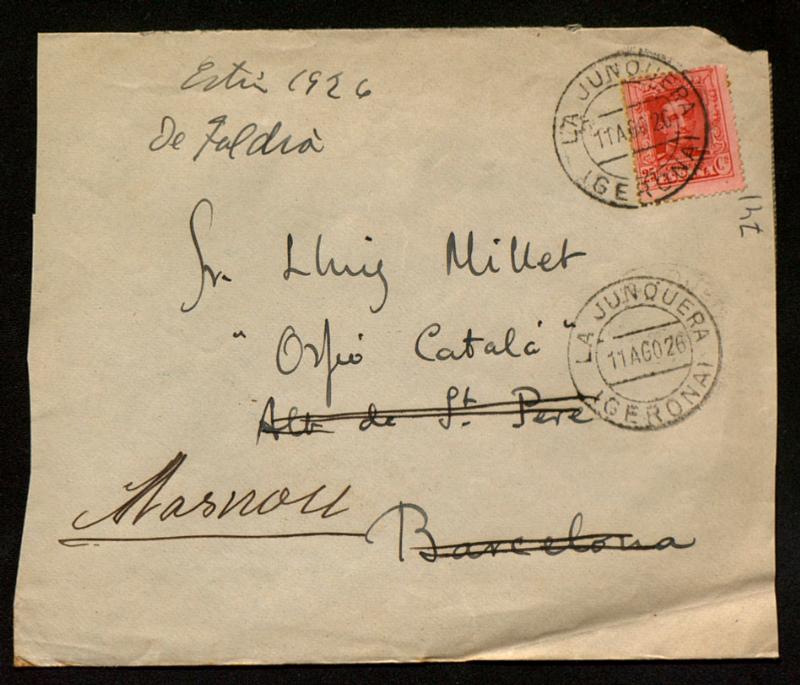 Estiu 1926
De Foldrà
LA JUNQUERA
11 AGO 26
(GERONA)
25 Cs
Sr. Lluis Millet
"Orfeó Català"
Alt de St. Pere
LA JUNQUERA
11 AGO 26
(GERONA)
Masnou
Barcelona